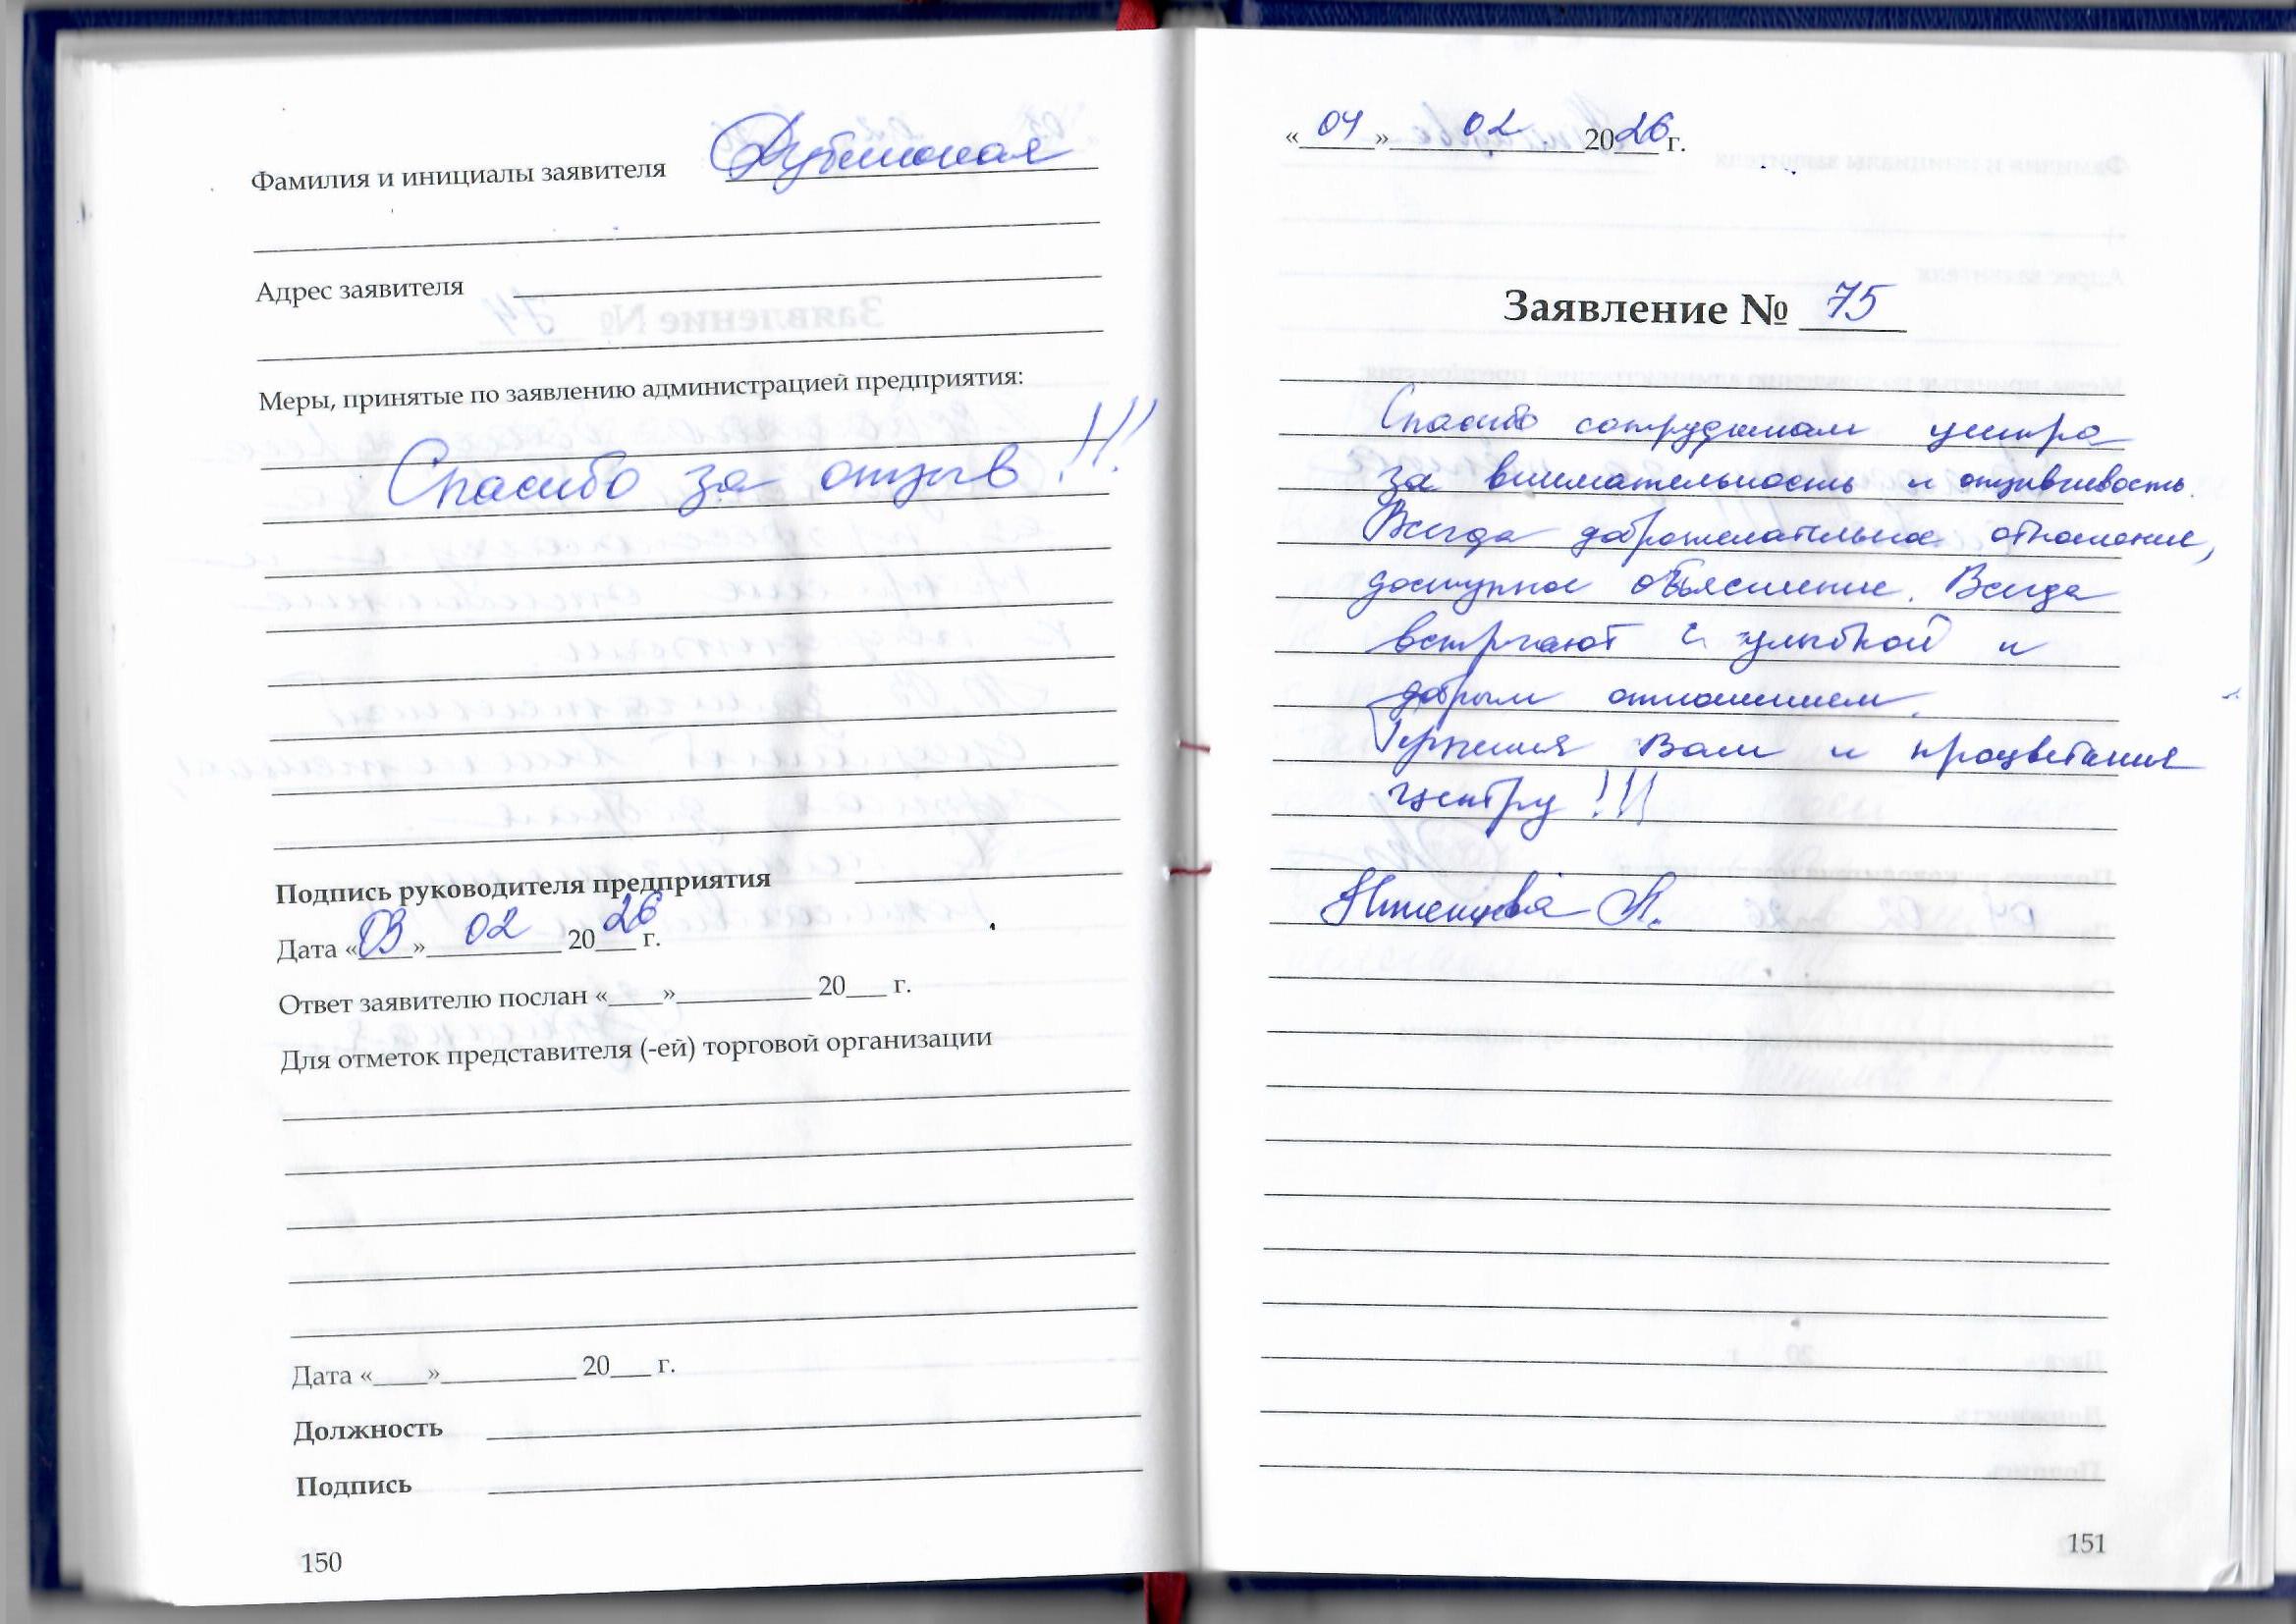 Фамилия и инициалы заявителя Дубинская
Адрес заявителя
Меры, принятые по заявлению администрацией предприятия:
Спасибо за отзыв!!!
Подпись руководителя предприятия
Дата «03» 02 2026 г.
Ответ заявителю послан «____»__________ 20___ г.
Для отметок представителя (-ей) торговой организации
Дата «____»__________ 20___ г.
Должность
Подпись
150
«04» 02 2026 г.
Заявление № 75
Спасибо сотрудникам центра
за внимательность и отзывчивость.
Всегда доброжелательное отношение,
доступное объяснение. Всегда
встречают с улыбкой и
добрым отношением.
Терпения Вам и процветания
центру!!!
А.
151